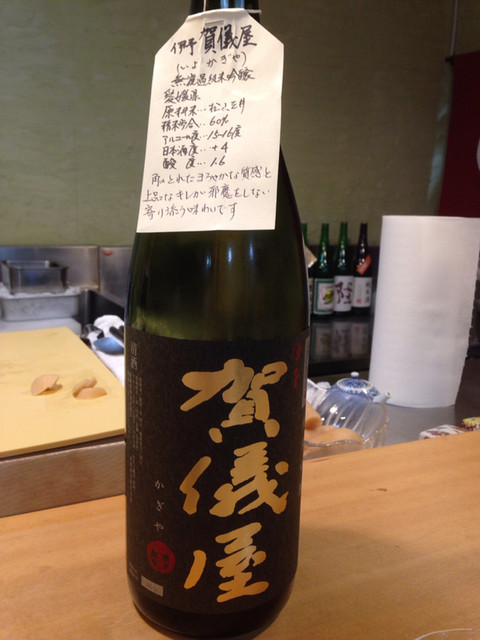 伊予 賀儀屋
(いよ かぎや)
無濾過純米吟醸
愛媛県
原料米…松山三井
精米歩合…60%
アルコール度…15~16度
日本酒度…+4
酸 度…1.6
角のとれたまろやかな質感と
上品なキレが邪魔をしない
寄り添う味わいです
賀儀屋
かぎや
清酒